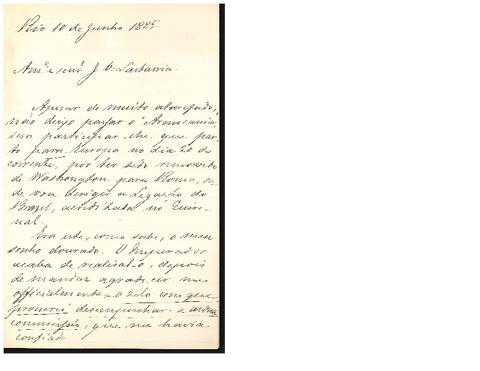 Rio 10 de Junho 1885.
Amº e senr. J. V. Lastarria.
Apesar de muito atarefado,
não deixo passar o "Araucania,
sem participar-lhe que par-
to para Europa no dia 20 do
corrente, por ter sido removido
de Washington para Roma, on-
de vou dirigir a Legação do
Brazil, acreditada no Quiri-
nal.
Era este, como sabe, o meu
sonho dourado. O Imperador
acaba de realisal-o, depois
de mandar agradecer-me
officialmente o zelo com que
procurei desempenhar a ardua
commissão, que me havia
confiado